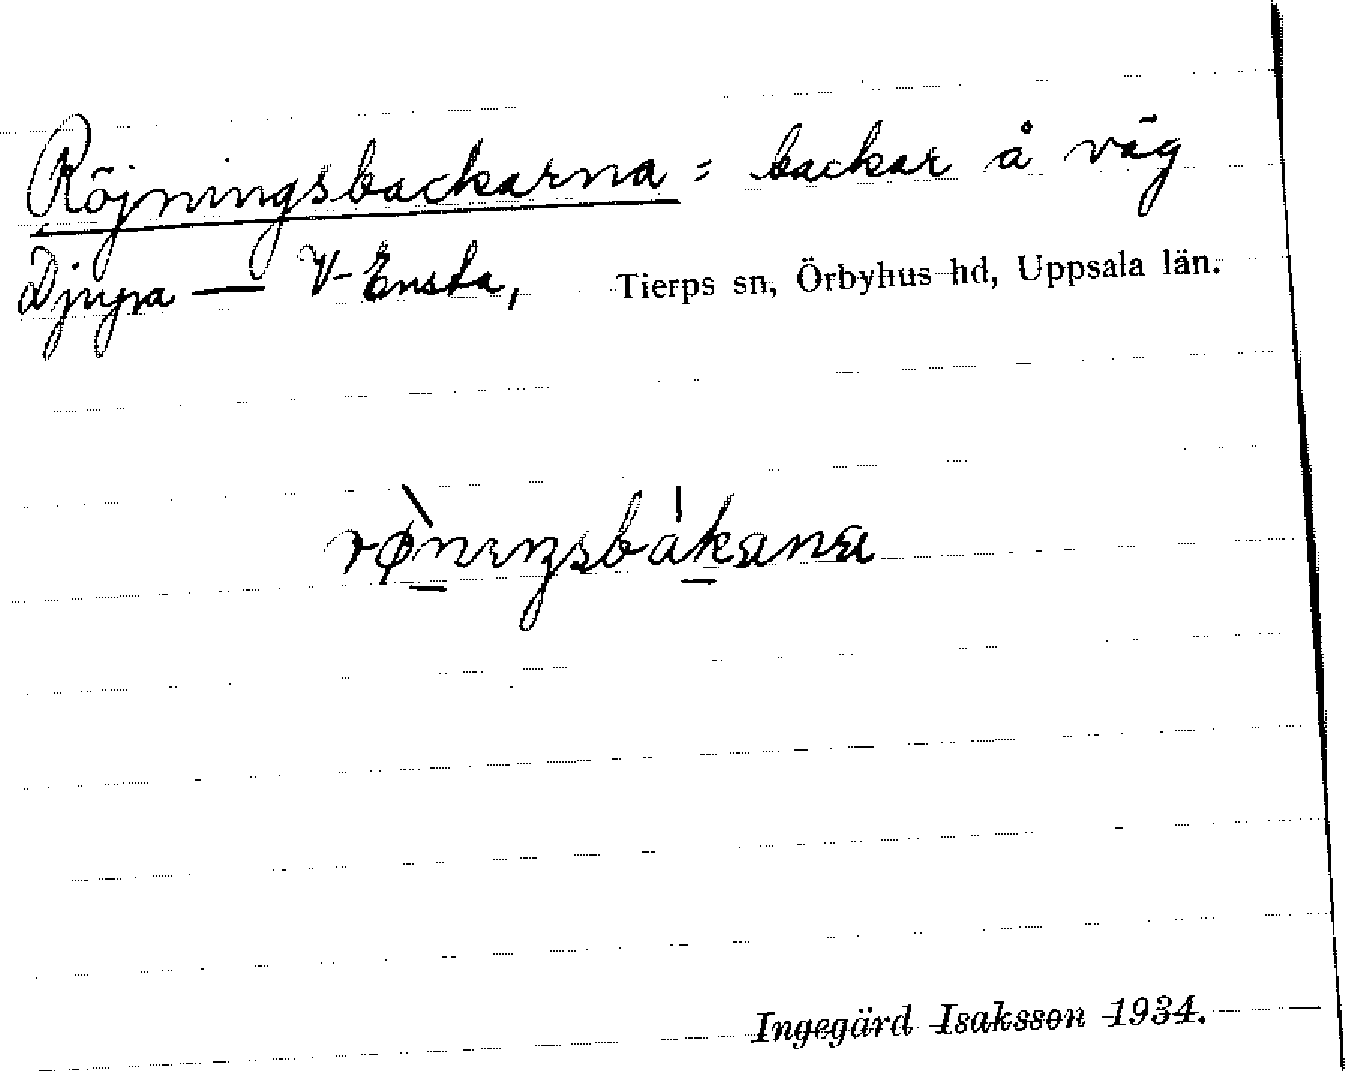 Röjningsbackarna = backar å väg
Djupa — V-Ensta, Tierps sn, Örbyhus hd, Uppsala län.
rø̀nɪŋsbákana
Ingegärd Isaksson 1934.